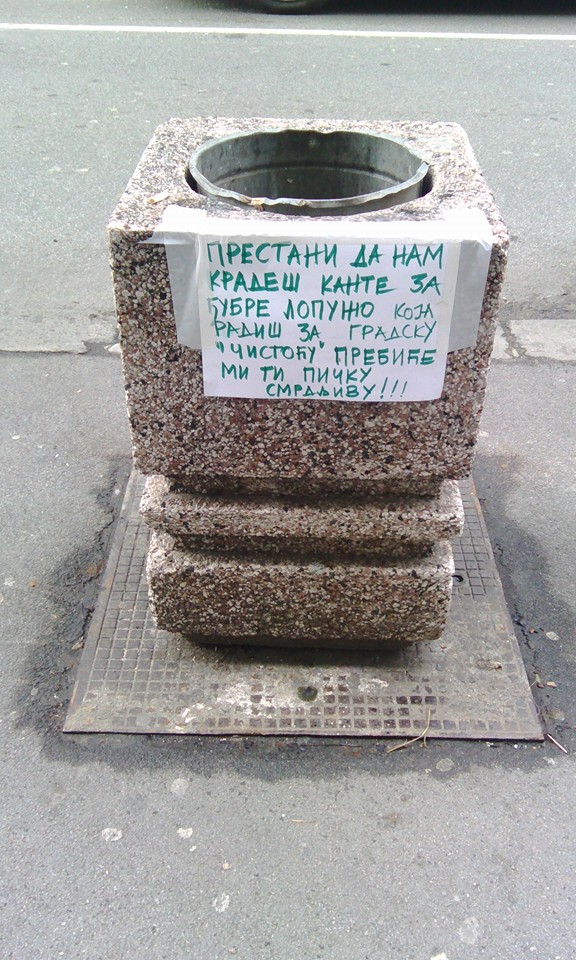 ПРЕСТАНИ ДА НАМ
КРАДЕШ КАНТЕ ЗА
ЂУБРЕ ЛОПУЖО КОЈА
РАДИШ ЗА ГРАДСКУ
"ЧИСТОЋУ" ПРЕБИЋЕ
МИ ТИ ПИЧКУ
СМРДЉИВУ!!!